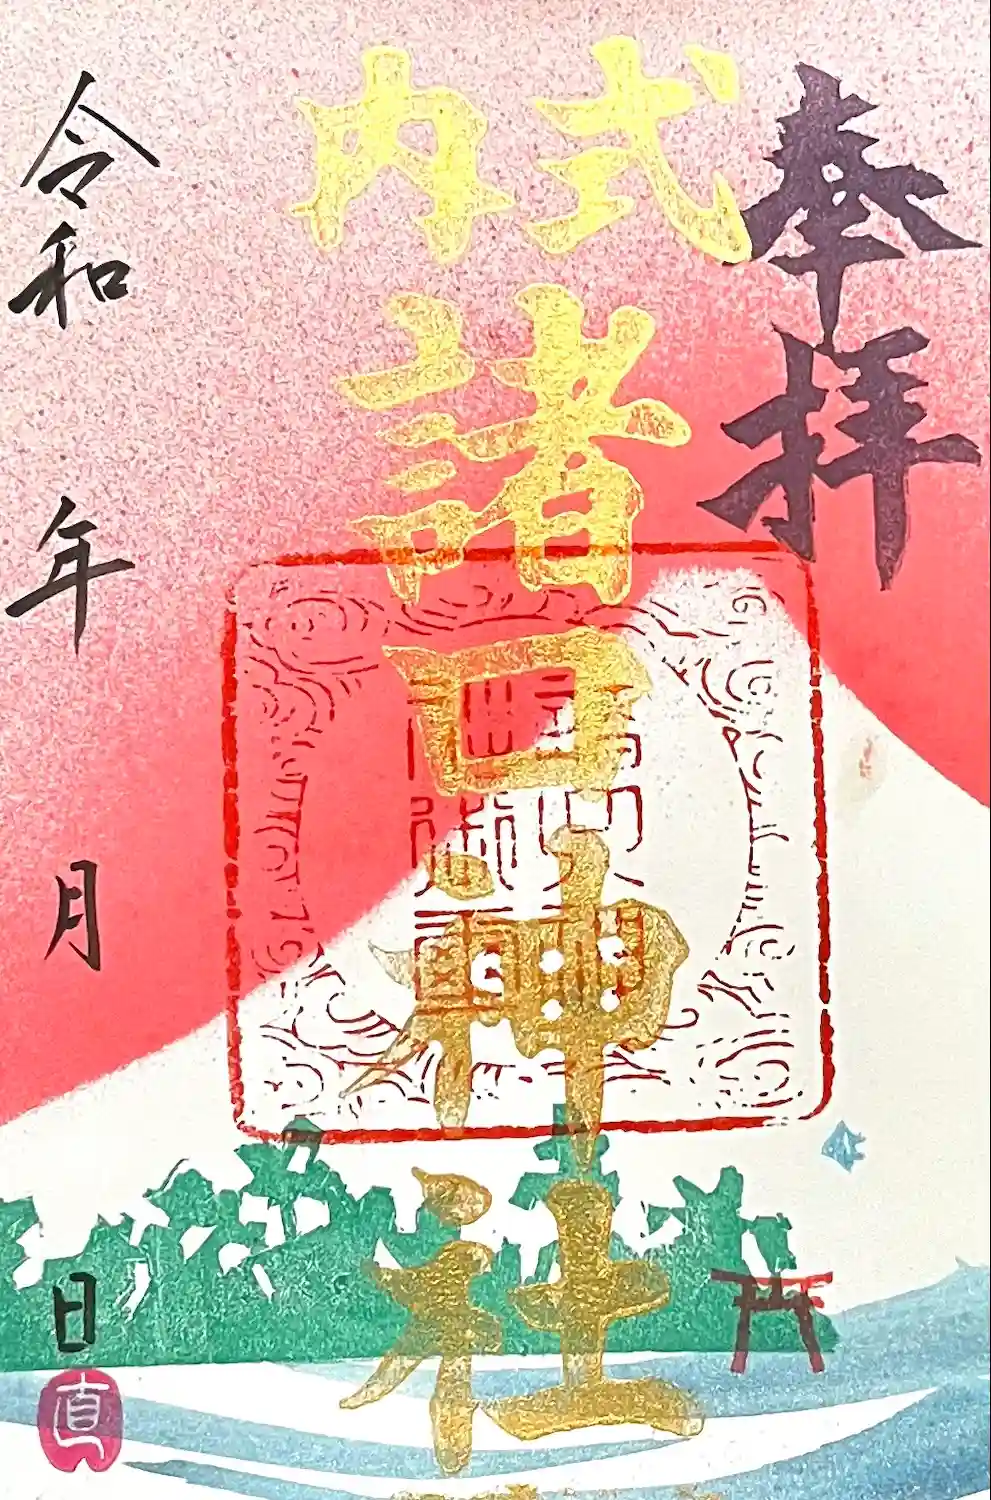 奉拝
式内
諸口神社
令和 年 月 日
真